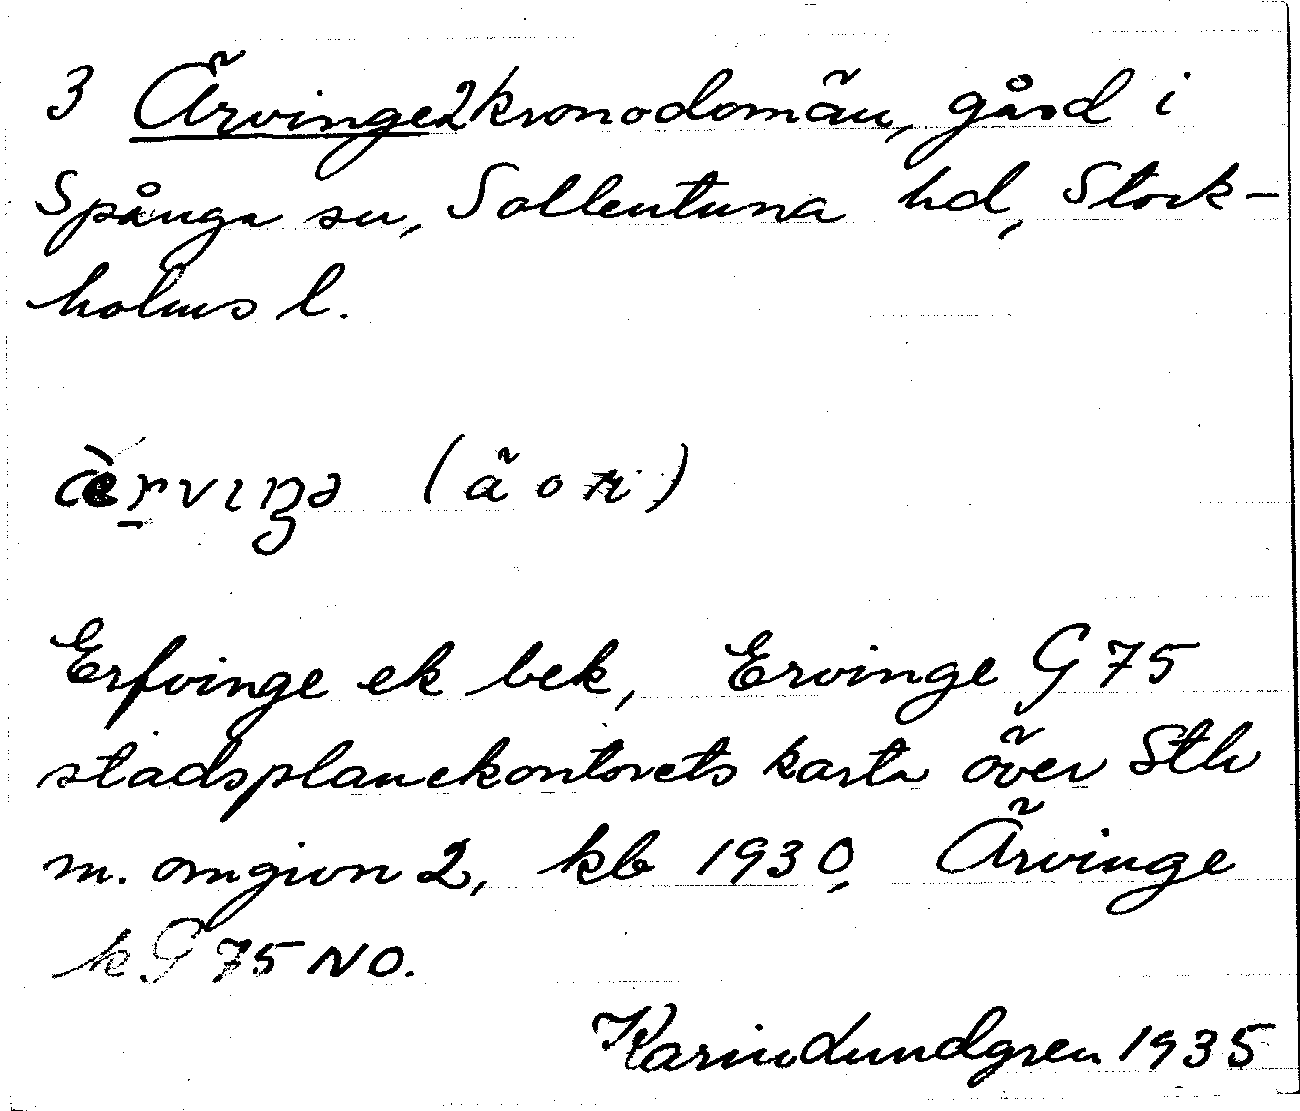 3 Ärvinge 2 kronodomän, gård i
Spånga sn, Sollentuna hd, Stock-
holms l.
æ̀r̠vıŋə (ä o )
Erfvinge ek bek, Ervinge G 75
stadsplanekontorets karta över Sth
m. omgivn 2, kb 1930, Ärvinge
k G 75 NO.
Karin Lundgren 1935